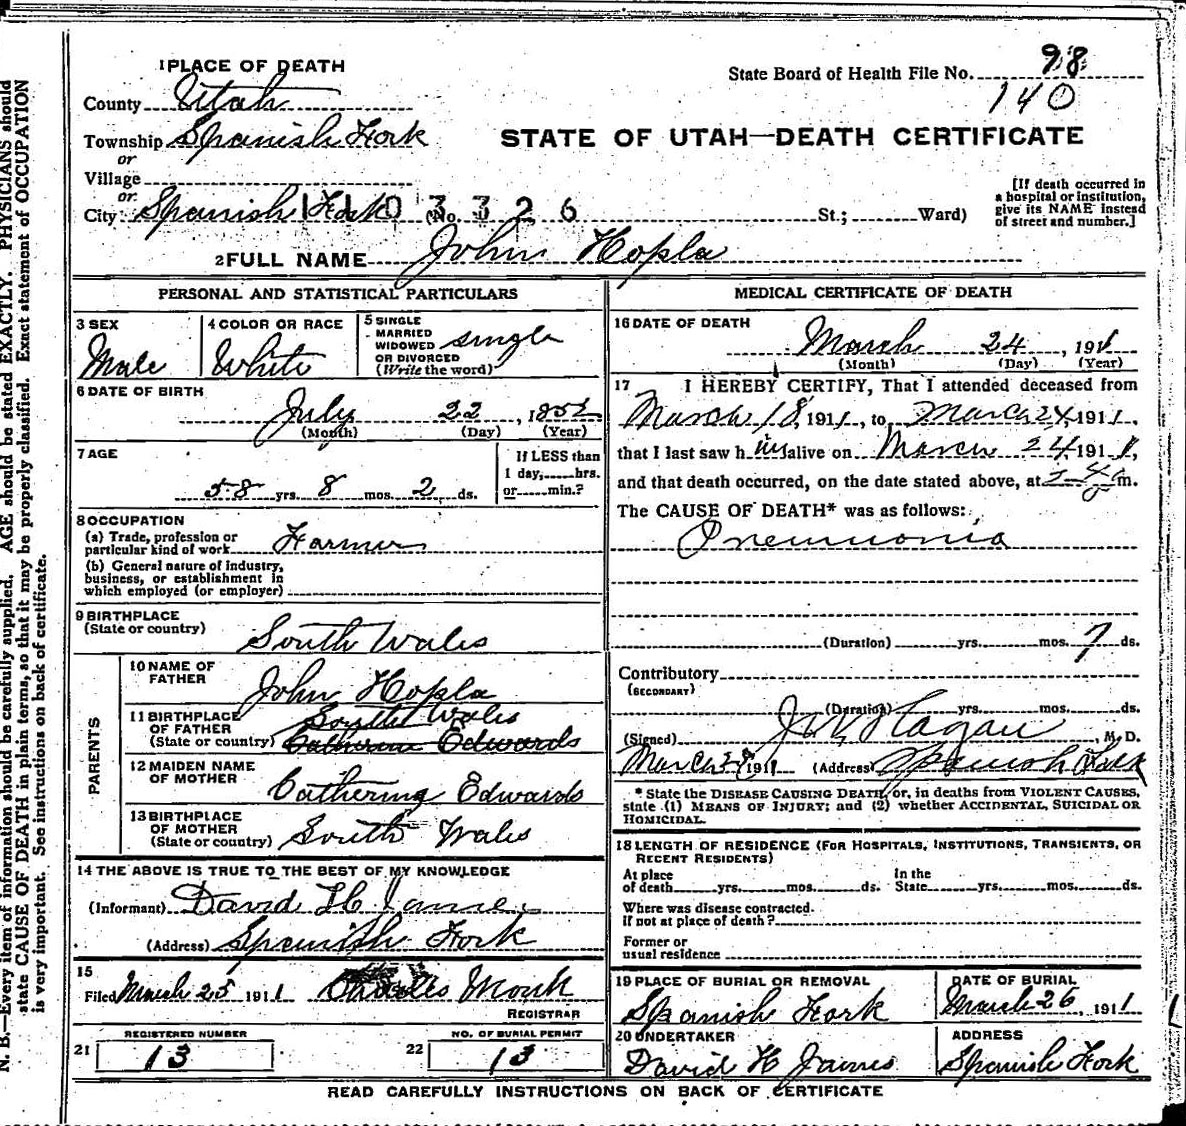 1 PLACE OF DEATH
State Board of Health File No. 98
140
County Utah
STATE OF UTAH—DEATH CERTIFICATE
Township Spanish Fork
or
Village
or
City Spanish Fork (No. St.; Ward)
1103326
[If death occurred in a hospital or institution, give its NAME instead of street and number.]
2 FULL NAME John Hopla
PERSONAL AND STATISTICAL PARTICULARS
3 SEX
Male
4 COLOR OR RACE
White
5 SINGLE
MARRIED
WIDOWED
OR DIVORCED
(Write the word)
single
6 DATE OF BIRTH
July 22, 1852
(Month) (Day) (Year)
7 AGE
58 yrs. 8 mos. 2 ds.
If LESS than
1 day, hrs.
or min.?
8 OCCUPATION
(a) Trade, profession or
particular kind of work Farmer
(b) General nature of industry,
business, or establishment in
which employed (or employer)
9 BIRTHPLACE
(State or country)
South Wales
PARENTS
10 NAME OF
FATHER
John Hopla
11 BIRTHPLACE
OF FATHER
(State or country)
South Wales
Catherine Edwards
12 MAIDEN NAME
OF MOTHER
Catherine Edwards
13 BIRTHPLACE
OF MOTHER
(State or country) South Wales
14 THE ABOVE IS TRUE TO THE BEST OF MY KNOWLEDGE
(Informant) David H James
(Address) Spanish Fork
15
Filed March 25 1911 Charles Monk
REGISTRAR
REGISTERED NUMBER
21 13
NO. OF BURIAL PERMIT
22 13
MEDICAL CERTIFICATE OF DEATH
16 DATE OF DEATH
March 24, 1911
(Month) (Day) (Year)
17 I HEREBY CERTIFY, That I attended deceased from
March 18, 1911, to March 24, 1911,
that I last saw him alive on March 24, 1911,
and that death occurred, on the date stated above, at m.
The CAUSE OF DEATH* was as follows:
Pneumonia
(Duration) yrs. mos. 7 ds.
Contributory
(SECONDARY)
(Duration) yrs. mos. ds.
(Signed) Hagan, M. D.
March 1911 (Address) Spanish Fork
* State the DISEASE CAUSING DEATH, or, in deaths from VIOLENT CAUSES,
state (1) MEANS OF INJURY; and (2) whether ACCIDENTAL, SUICIDAL OR
HOMICIDAL.
18 LENGTH OF RESIDENCE (FOR HOSPITALS, INSTITUTIONS, TRANSIENTS, OR
RECENT RESIDENTS)
At place
of death yrs. mos. ds.
In the
State yrs. mos. ds.
Where was disease contracted.
if not at place of death?
Former or
usual residence
19 PLACE OF BURIAL OR REMOVAL
Spanish Fork
DATE OF BURIAL
March 26, 1911
20 UNDERTAKER
David H James
ADDRESS
Spanish Fork
READ CAREFULLY INSTRUCTIONS ON BACK OF CERTIFICATE
N. B.—Every item of information should be carefully supplied. AGE should be stated EXACTLY. PHYSICIANS should
state CAUSE OF DEATH in plain terms, so that it may be properly classified. Exact statement of OCCUPATION
is very important. See instructions on back of certificate.